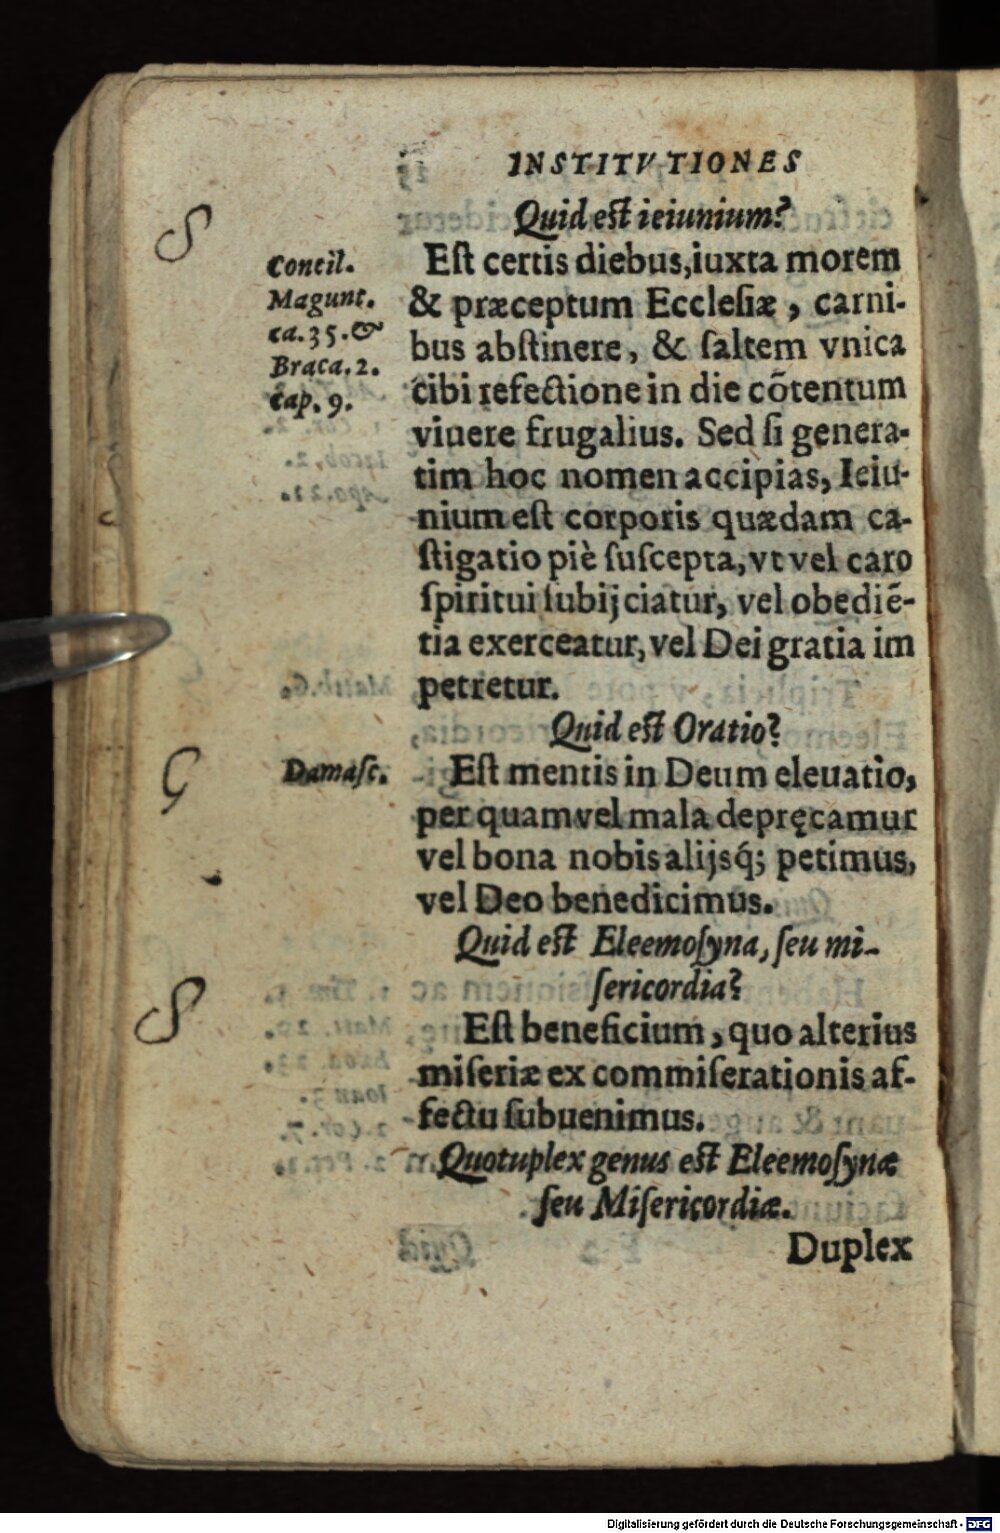 INSTITVTIONES
Quid est ieiunium?
Est certis diebus, iuxta morem
& præceptum Ecclesiæ, carni-
bus abstinere, & saltem vnica
cibi refectione in die cõtentum
viuere frugalius. Sed si genera-
tim hoc nomen accipias, Ieiu-
nium est corporis quædam ca-
stigatio piè suscepta, vt vel caro
spiritui subijciatur, vel obediẽ-
tia exerceatur, vel Dei gratia im
petretur.
Quid est Oratio?
Est mentis in Deum eleuatio,
per quam vel mala depręcamur
vel bona nobis alijsq́; petimus,
vel Deo benedicimus.
Quid est Eleemosyna, seu mi-
sericordia?
Est beneficium, quo alterius
miseriæ ex commiserationis af-
fectu subuenimus.
Quotuplex genus est Eleemosynæ
seu Misericordiæ.
Duplex
Concil.
Magunt.
ca. 35. &
Braca. 2.
cap. 9.
Damasc.
Digitalisierung gefördert durch die Deutsche Forschungsgemeinschaft - DFG